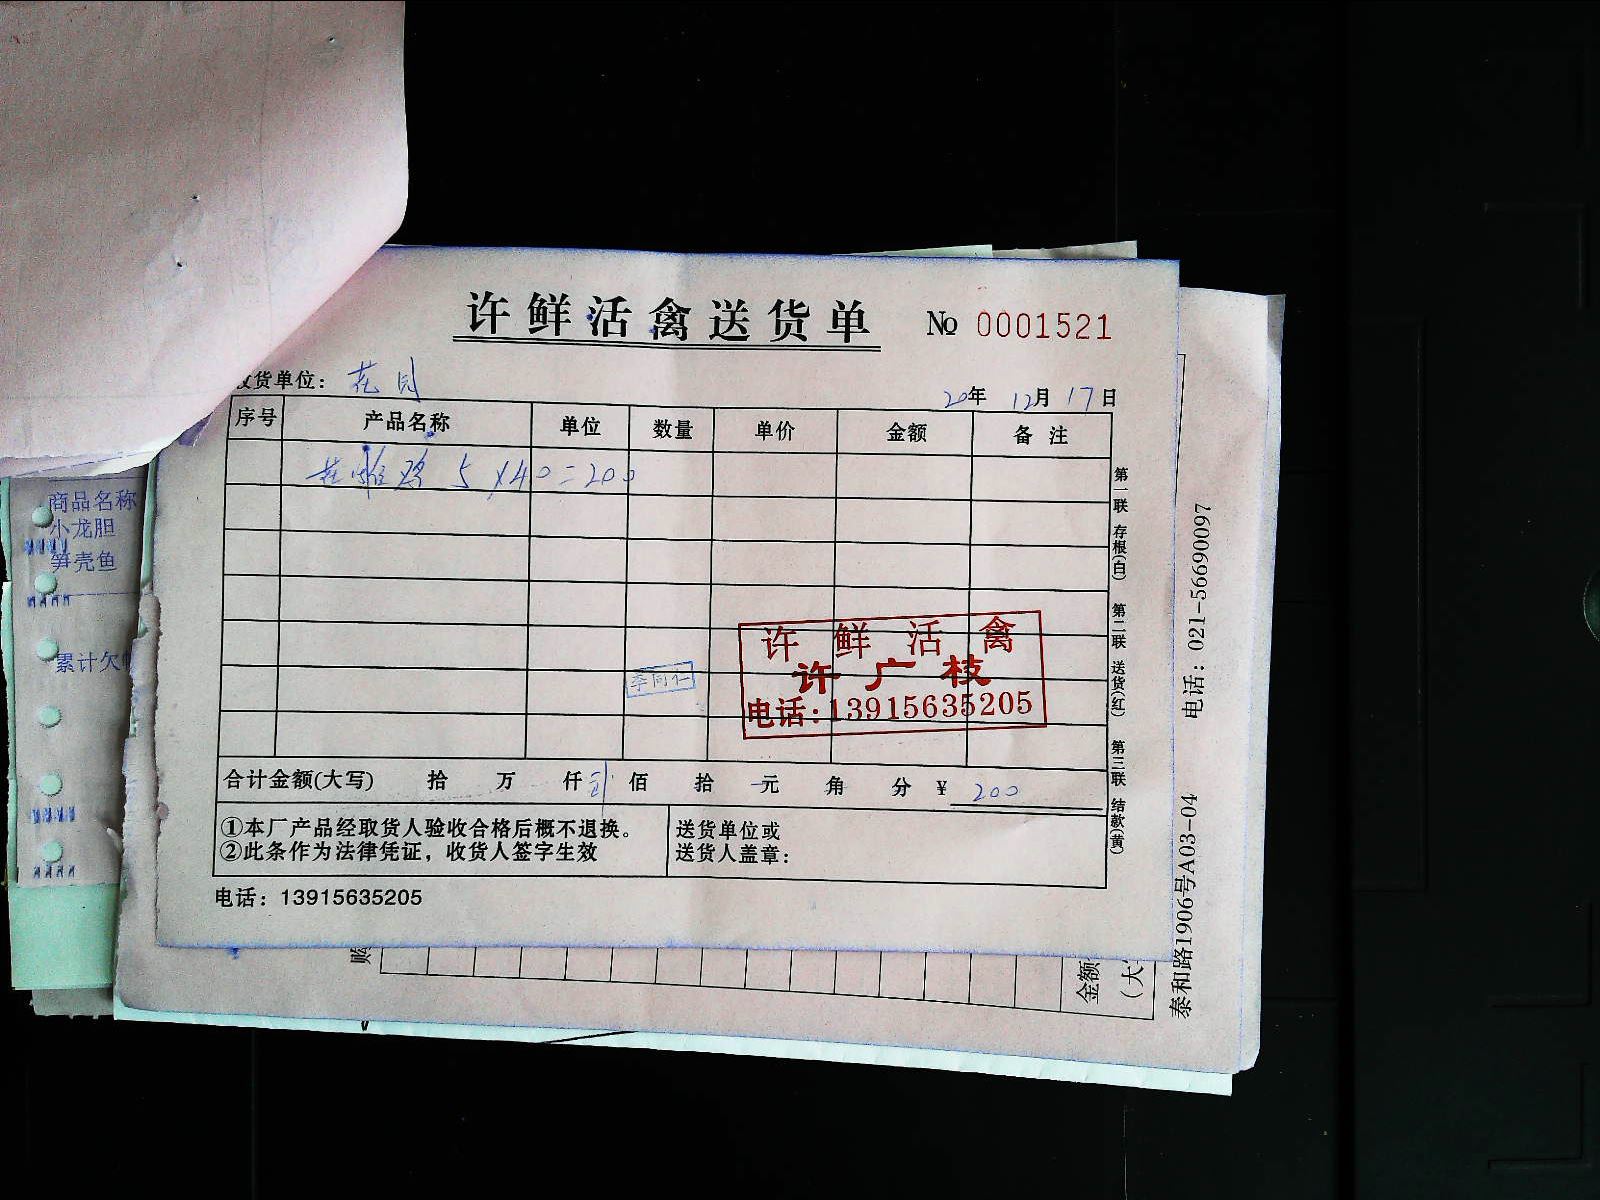 许鲜活禽送货单 № 0001521
货单位： 花园
20年 12月 17日
序号 产品名称 单位 数量 单价 金额 备注
鸡 5 ×40=200
许鲜活禽
许广枝
电话:13915635205
李同仁
合计金额(大写) 拾 万 仟 佰 拾 元 角 分 ¥ 200
①本厂产品经取货人验收合格后概不退换。
②此条作为法律凭证，收货人签字生效
送货单位或
送货人盖章：
电话：13915635205
第一联 存根(白) 第二联 送货(红) 第三联 结款(黄)
商品名称
小龙胆
笋壳鱼
累计欠
泰和路1906号A03-04 电话：021-56690097
购
金额
（大